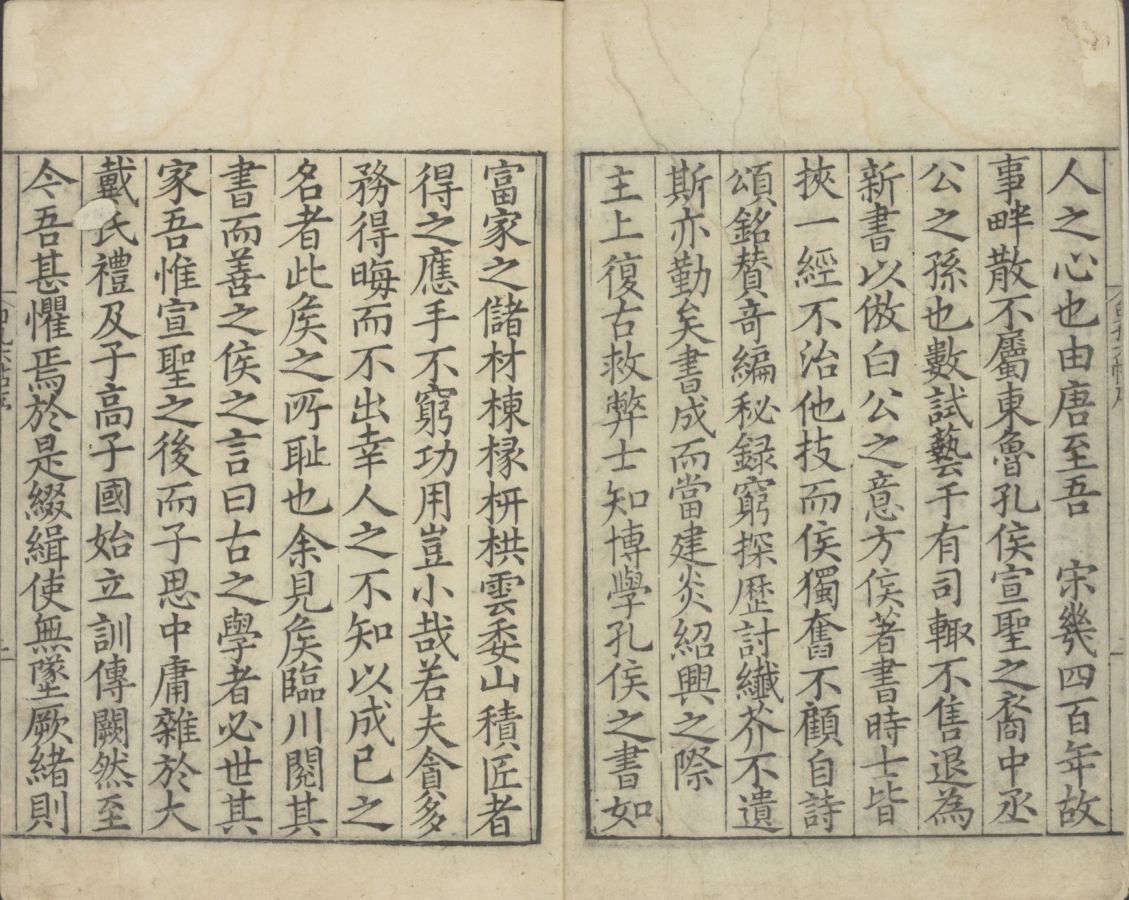 人之心也由唐至吾　宋幾四百年故
事畔散不屬東魯孔侯宣聖之裔中丞
公之孫也數試藝于有司輙不售退為
新書以倣白公之意方侯著書時士皆
挾一經不治他技而侯獨奮不顧自詩
頌銘贊竒編秘録窮探歷討纎芥不遺
斯亦勤矣書成而當建炎紹興之際
主上復古救弊士知博學孔侯之書如
富家之儲材棟椽枅栱雲委山積匠者
得之應手不窮功用豈小哉若夫貪多
務得晦而不出幸人之不知以成已之
名者此矦之所耻也余見矦臨川閱其
書而善之侯之言曰古之學者必世其
家吾惟宣聖之後而子思中庸雜於大
戴氏禮及子高子國始立訓傳闕然至
今吾甚懼焉於是綴緝使無墜厥緒則